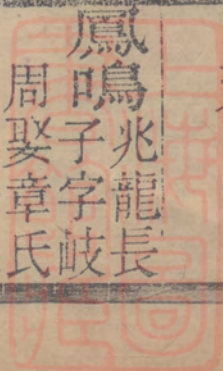 鳳鳴
兆龍長
子字岐
周娶章氏